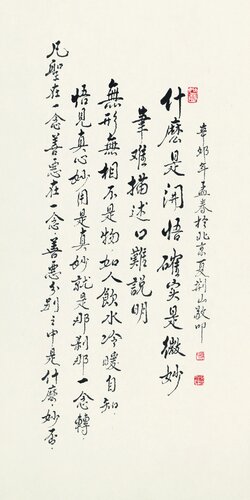 什麼是開悟確實是微妙
筆难描述口難説明
無形無相不是物如人飲水冷暖自知
悟見真心妙用是真妙就是那刹那一念轉
凡聖在一念善惡在一念善惡分别之中是什麼妙否
辛卯年孟春於北京夏荆山敬叩